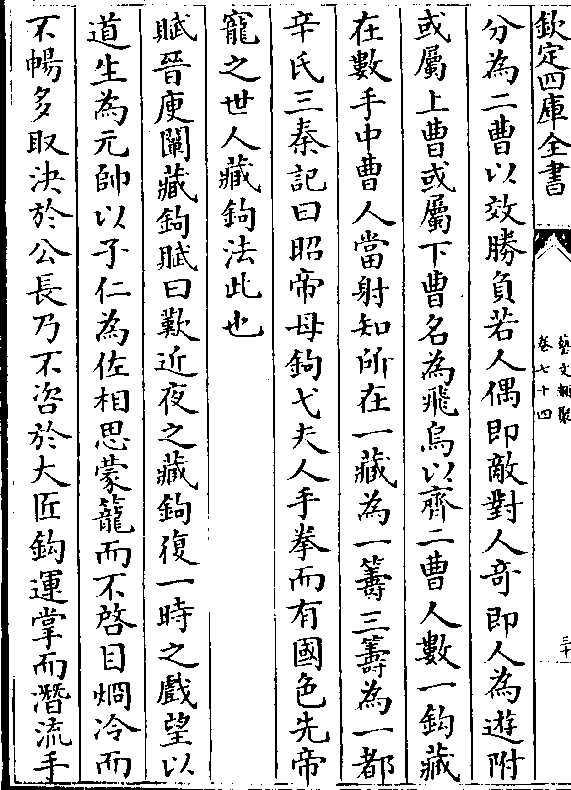 欽定四庫全書
藝文類聚
卷七十四
三十
分為二曹以效勝負若人偶即敵對人奇即人為遊附
或屬上曹或屬下曹名為飛鳥以齊二曹人數一鈎藏
在數手中曹人當射知所在一藏為一籌三籌為一都
辛氏三秦記曰昭帝母鉤弋夫人手拳而有國色先帝
寵之世人藏鉤法此也
賦晉庾闡藏鉤賦曰歎近夜之藏鉤復一時之戲望以
道生為元帥以子仁為佐相思蒙籠而不啓目烱冷而
不暢多取決於公長乃不咨於大匠鈎運掌而潛流手